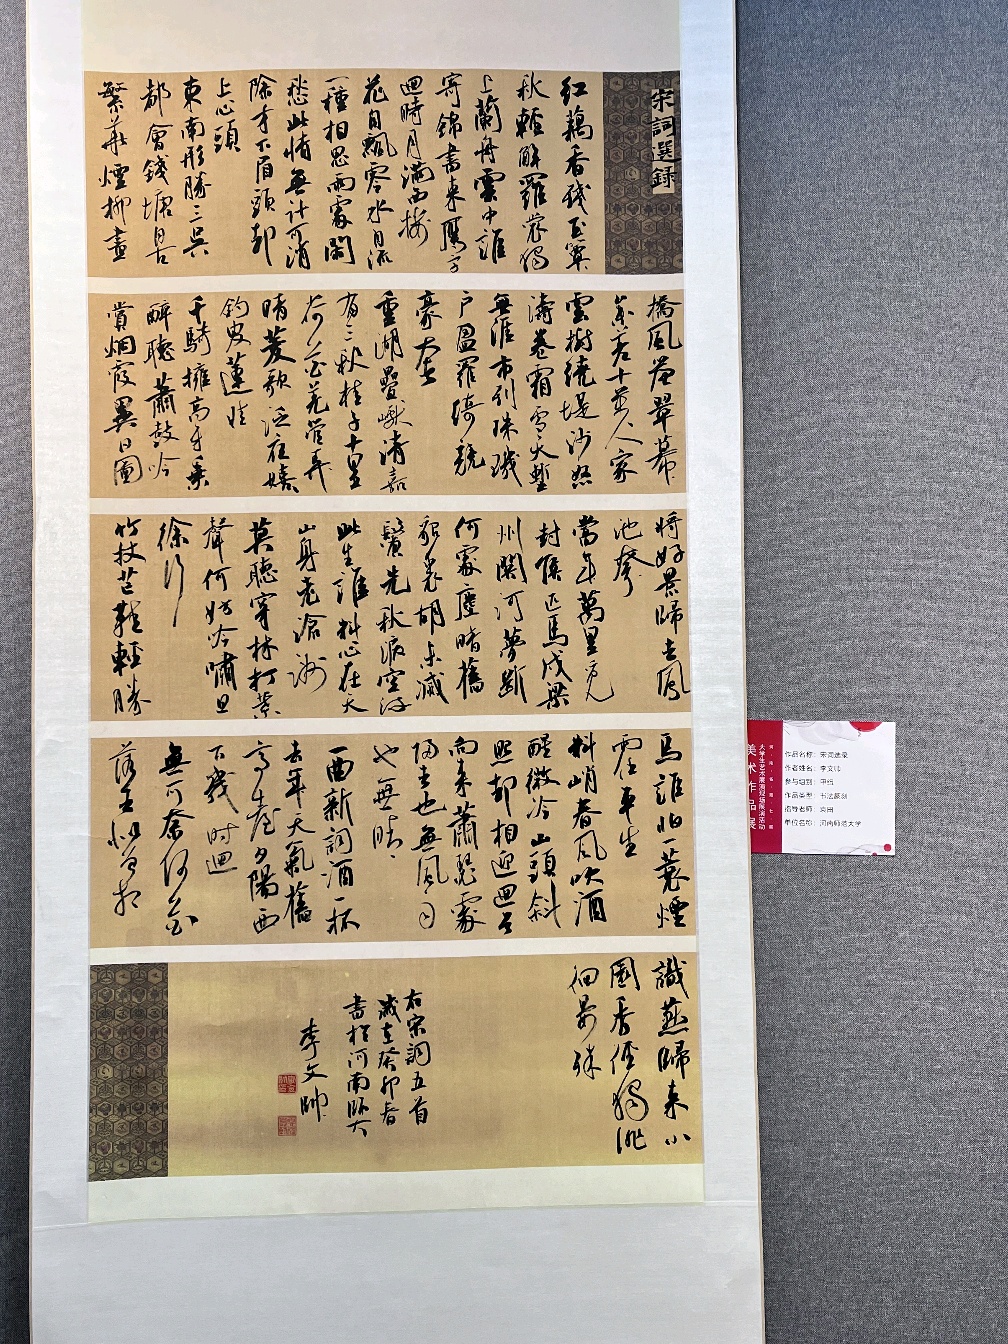 宋詞選録
紅藕香殘玉簟
秋輕解羅裳獨
上蘭舟雲中誰
寄錦書來雁字
迴時月滿西樓
花自飄零水自流
一種相思兩處閑
愁此情無計可消
除才下眉頭却
上心頭
東南形勝三吳
都會錢塘自古
繁華煙柳畫
橋風簾翠幕
參差十萬人家
雲樹繞堤沙怒
濤卷霜雪天塹
無涯市列珠璣
户盈羅綺競
豪奢
重湖疊巘清嘉
有三秋桂子十里
荷花羌管弄
晴菱歌泛夜嬉
釣叟蓮娃
千騎擁高牙乘
醉聽蕭鼓吟
賞烟霞異日圖
將好景歸去鳳
池夸
當年萬里覓
封侯匹馬戍梁
州關河夢斷
何處塵暗舊
貂裘胡未滅
鬢先秋淚空流
此生誰料心在天
山身老滄洲
莫聽穿林打葉
聲何妨吟嘯且
徐行
竹杖芒鞋輕勝
馬誰怕一蓑煙
雨任平生
料峭春風吹酒
醒微冷山頭斜
照却相迎迴首
向來蕭瑟處
歸去也無風雨
也無晴
一曲新詞酒一杯
去年天氣舊
亭臺夕陽西
下幾時迴
無可奈何花
落去似曾相
識燕歸來小
園香徑獨徘
徊
右宋詞五首
歲在癸卯春
書於河南師大
李文帥
大学生艺术展演现场展演活动
美术作品展
作品名称：宋词选录
作者姓名：李文帅
参与组别：甲组
作品类型：书法篆刻
指导老师：
单位名称：河南师范大学